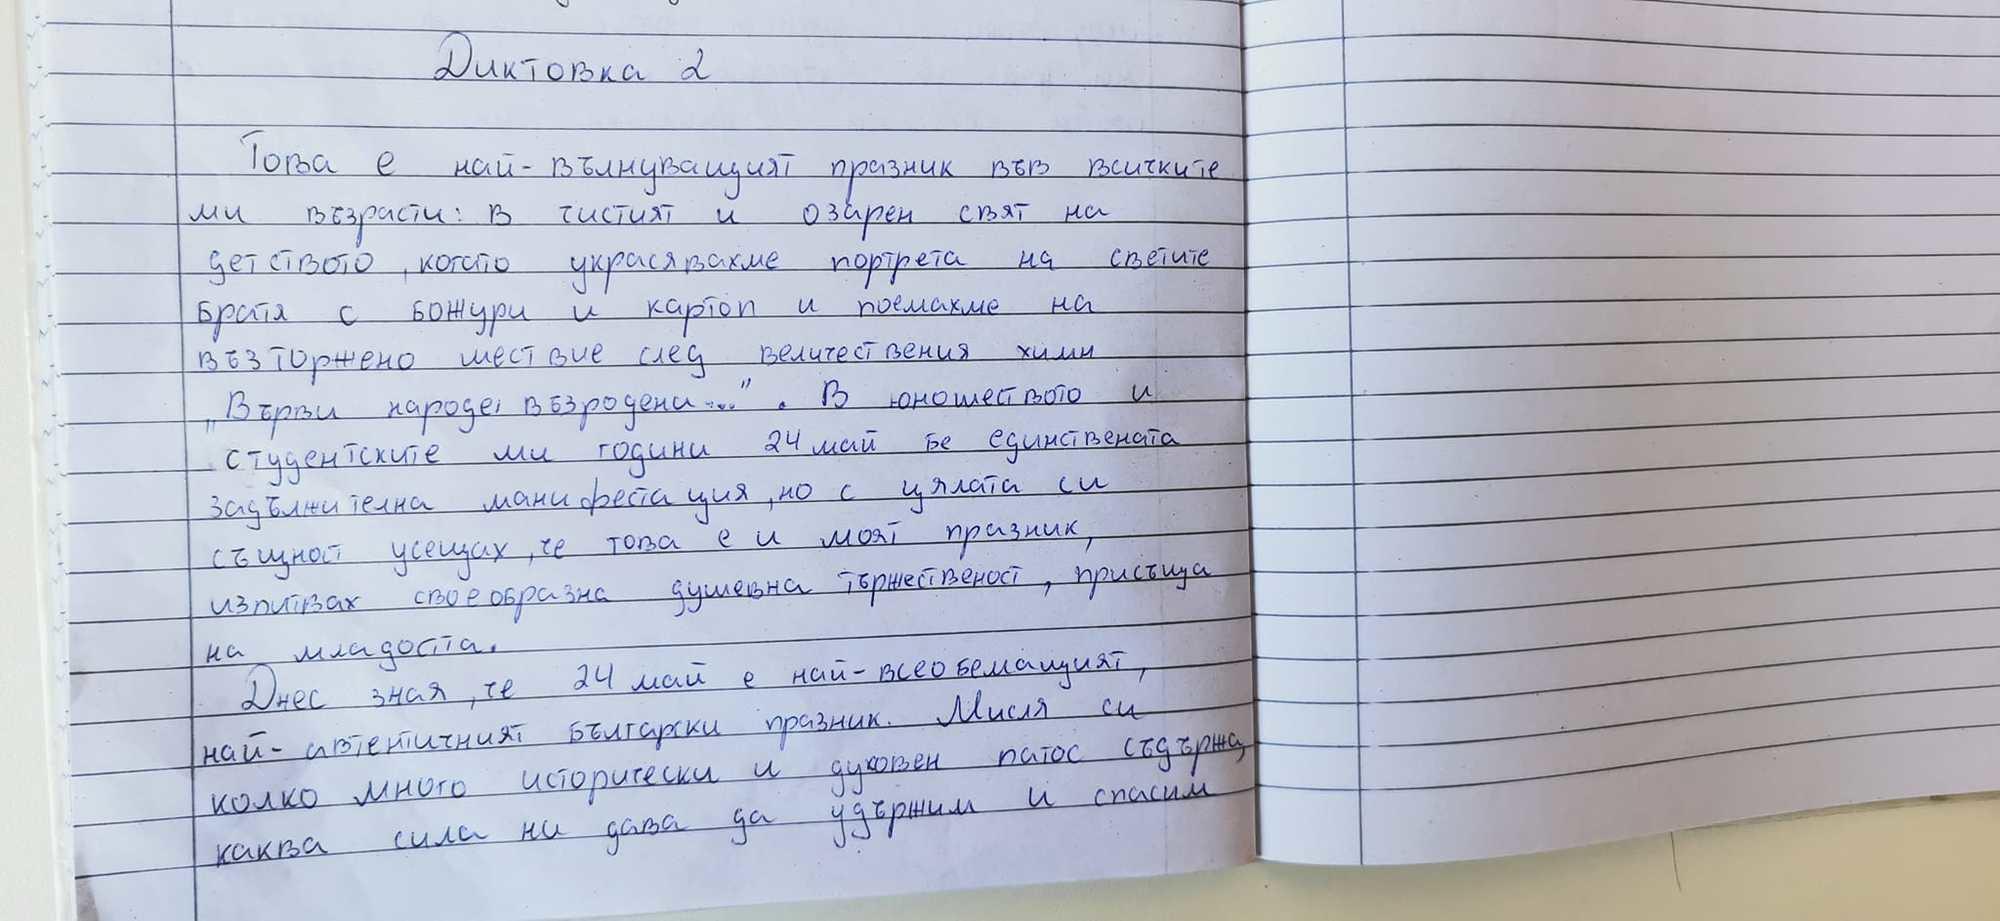 Диктовка 2
Това е най-вълнуващият празник във всичките
ми възрасти: в чистият и озарен свят на
детството, когато украсявахме портрета на светите
братя с божури и картоп и поемахме на
възторжено шествие след величествения химн
„Върви народе, възродени...". В юношеството и
студентските ми години 24 май бе единствената
задължителна манифестация, но с цялата си
същност усещах, че това е и моят празник,
изпитвах своеобразна душевна тържественост, присъща
на младостта.
Днес зная, че 24 май е най-всеобемащият,
най-автентичният български празник. Мисля си
колко много исторически и духовен патос съдържа,
каква сила ни дава да удържим и спасим